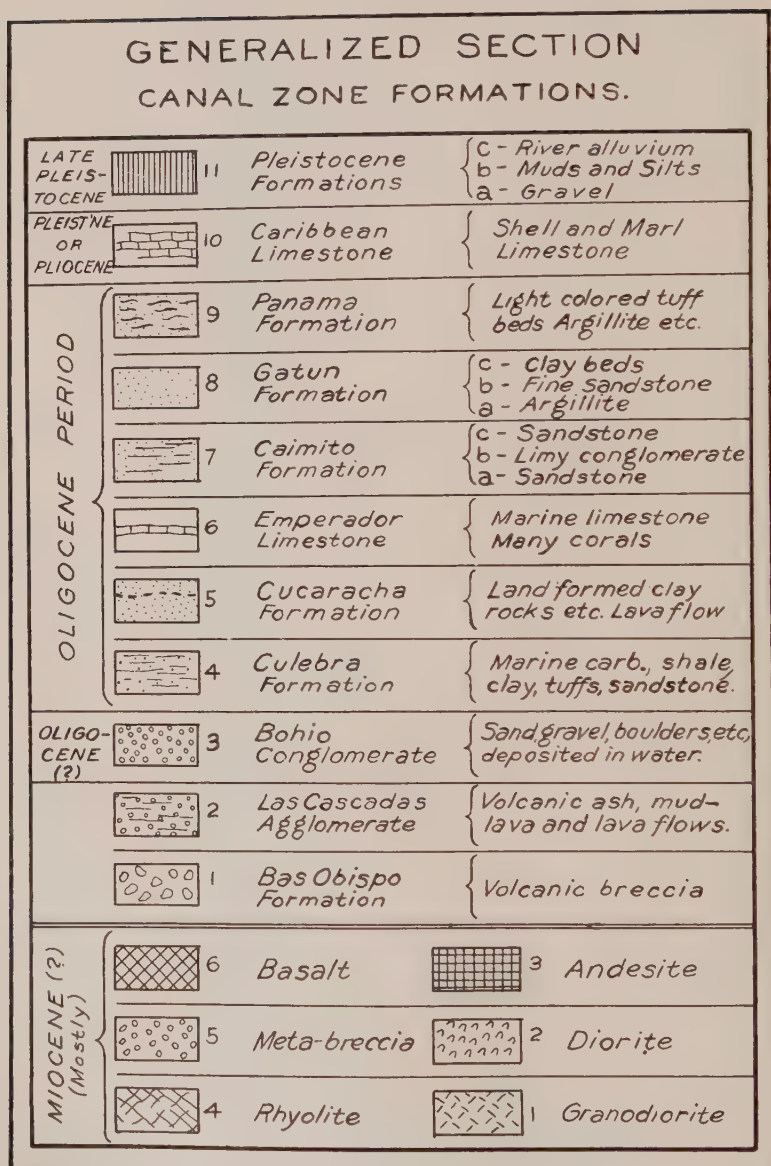 GENERALIZED SECTION
CANAL ZONE FORMATIONS.
LATE
PLEIS-
TOCENE
11
Pleistocene
Formations
c - River alluvium
b - Muds and Silts
a - Gravel
PLEIST'NE
OR
PLIOCENE
10
Caribbean
Limestone
Shell and Marl
Limestone
OLIGOCENE PERIOD
9
Panama
Formation
Light colored tuff
beds Argillite etc.
8
Gatun
Formation
c - Clay beds
b - Fine sandstone
a - Argillite
7
Caimito
Formation
c - Sandstone
b - Limy conglomerate
a - Sandstone
6
Emperador
Limestone
Marine limestone
Many corals
5
Cucaracha
Formation
Land formed clay
rocks etc. Lava flow
4
Culebra
Formation
Marine carb., shale,
clay, tuffs, sandstone.
OLIGO-
CENE
(?)
3
Bohio
Conglomerate
Sand, gravel, boulders, etc,
deposited in water.
2
Las Cascadas
Agglomerate
Volcanic ash, mud-
lava and lava flows.
1
Bas Obispo
Formation
Volcanic breccia
MIOCENE (?)
(Mostly)
6 Basalt
3 Andesite
5 Meta-breccia
2 Diorite
4 Rhyolite
1 Granodiorite